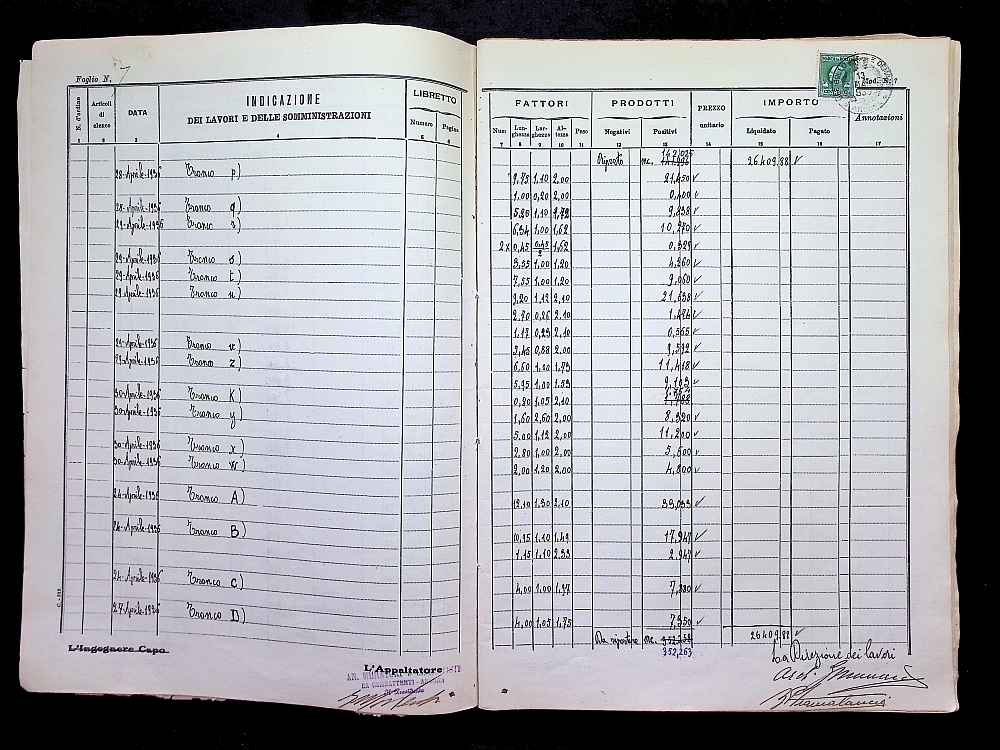 Foglio N. 7
N. d'ordine
Articoli di elenco
DATA
INDICAZIONE
DEI LAVORI E DELLE SOMMINISTRAZIONI
LIBRETTO
Numero
Pagina
1 2 3 4 5 6
28-Aprile-1936 Tronco p)
28-Aprile-1936 Tronco q)
29-Aprile-1936 Tronco r)
29-Aprile-1936 Tronco s)
29-Aprile-1936 Tronco t)
29-Aprile-1936 Tronco u)
29-Aprile-1936 Tronco v)
29-Aprile-1936 Tronco z)
30-Aprile-1936 Tronco K)
30-Aprile-1936 Tronco y)
30-Aprile-1936 Tronco x)
30-Aprile-1936 Tronco w)
24-Aprile-1936 Tronco A)
24-Aprile-1936 Tronco B)
24-Aprile-1936 Tronco C)
27-Aprile-1936 Tronco D)
L'Ingegnere Capo
L'Appaltatore
EX COMBATTENTI
FATTORI
PRODOTTI
PREZZO unitario
IMPORTO
Annotazioni
Num
Lunghezza
Larghezza
Altezza
Peso
Negativi
Positivi
Liquidato
Pagato
7 8 9 10 11 12 13 14 15 16 17
Riporto mc. 142,025 26409,88
9,75 1,10 2,00 21,450
1,00 0,20 2,00 0,400
5,20 1,10 1,72 9,838
6,34 1,00 1,62 10,270
2x 0,45 0,45/2 1,62 0,329
3,55 1,00 1,20 4,260
7,55 1,00 1,20 9,060
9,20 1,12 2,10 21,638
2,70 0,26 2,10 1,474
1,17 0,23 2,10 0,565
5,95 1,00 1,53 9,103
1,60 2,60 2,00 8,320
5,00 1,12 2,00 11,200
2,80 1,00 2,00 5,600
2,00 1,20 2,00 4,800
12,10 1,30 2,10 33,033
1,15 1,10 2,33 2,947
4,00 1,00 1,97 7,880
4,00 1,05 1,75 7,350
Da riportare mc. 352,263 26409,88
La Direzione dei lavori